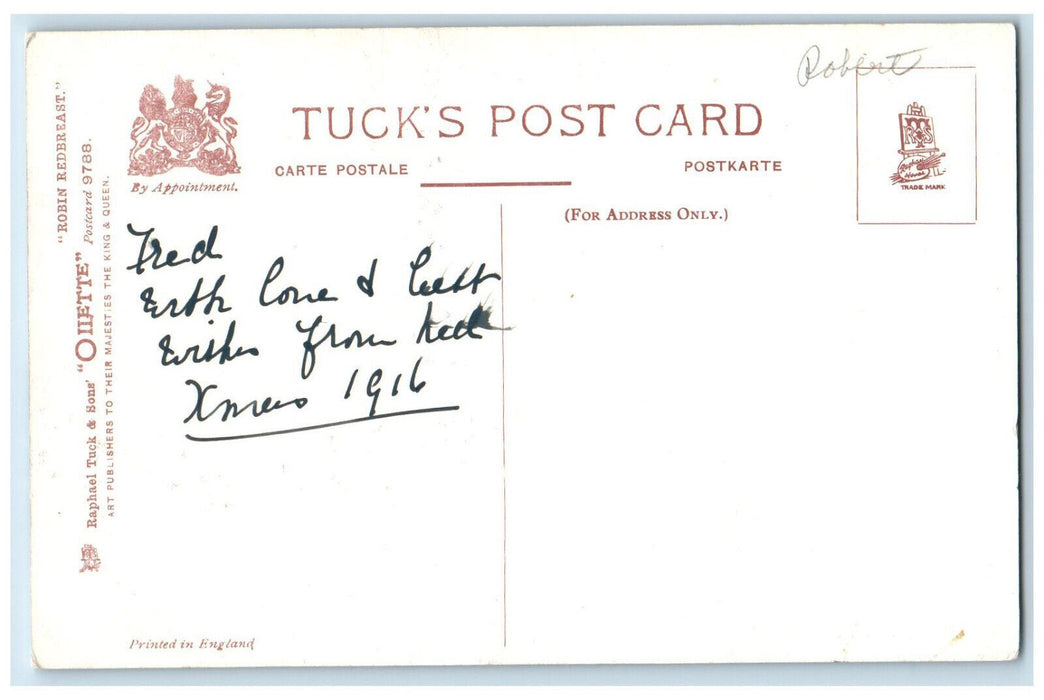 "ROBIN REDBREAST."
Raphael Tuck & Sons' "OILETTE" Postcard 9788.
ART PUBLISHERS TO THEIR MAJESTIES THE KING & QUEEN.
By Appointment.
TUCK'S POST CARD
CARTE POSTALE
POSTKARTE
(FOR ADDRESS ONLY.)
Robert
Raphael House
TRADE MARK
Fred
With love & best
wishes from
Xmas 1916
Printed in England